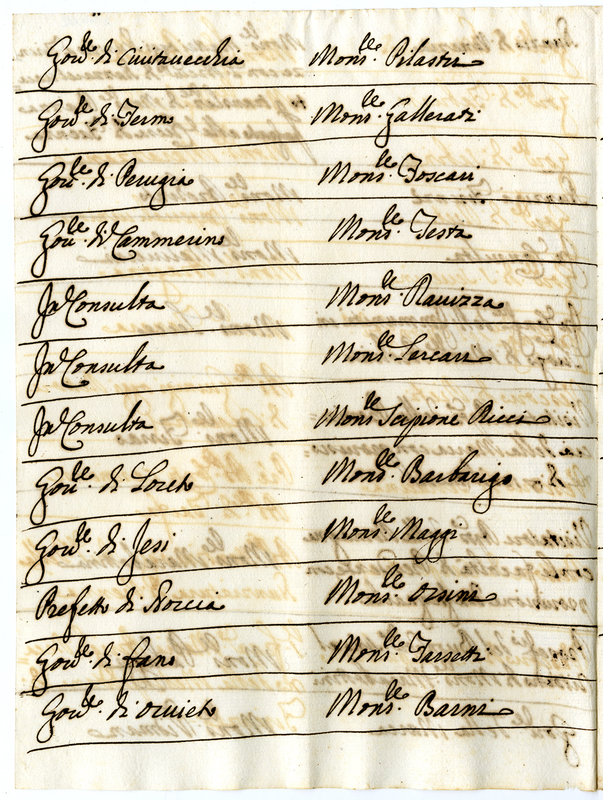 Gov.re di Civitavecchia Mons.re Pilastri
Gov.re di Fermo Mons.re Gallerati
Gov.re di Perugia Mons.re Foscari
Gov.re di Cammerino Mons.re Testa
In Consulta Mons.re Ravizza
In Consulta Mons.re Lercari
In Consulta Mons.re Scipione Ricci
Gov.re di Loreto Mons.re Barbarigo
Gov.re di Jesi Mons.re Maggi
Prefetto di Norcia Mons.re Orsini
Gov.re di Fano Mons.re Farsetti
Gov.re di Orvieto Mons.re Barni